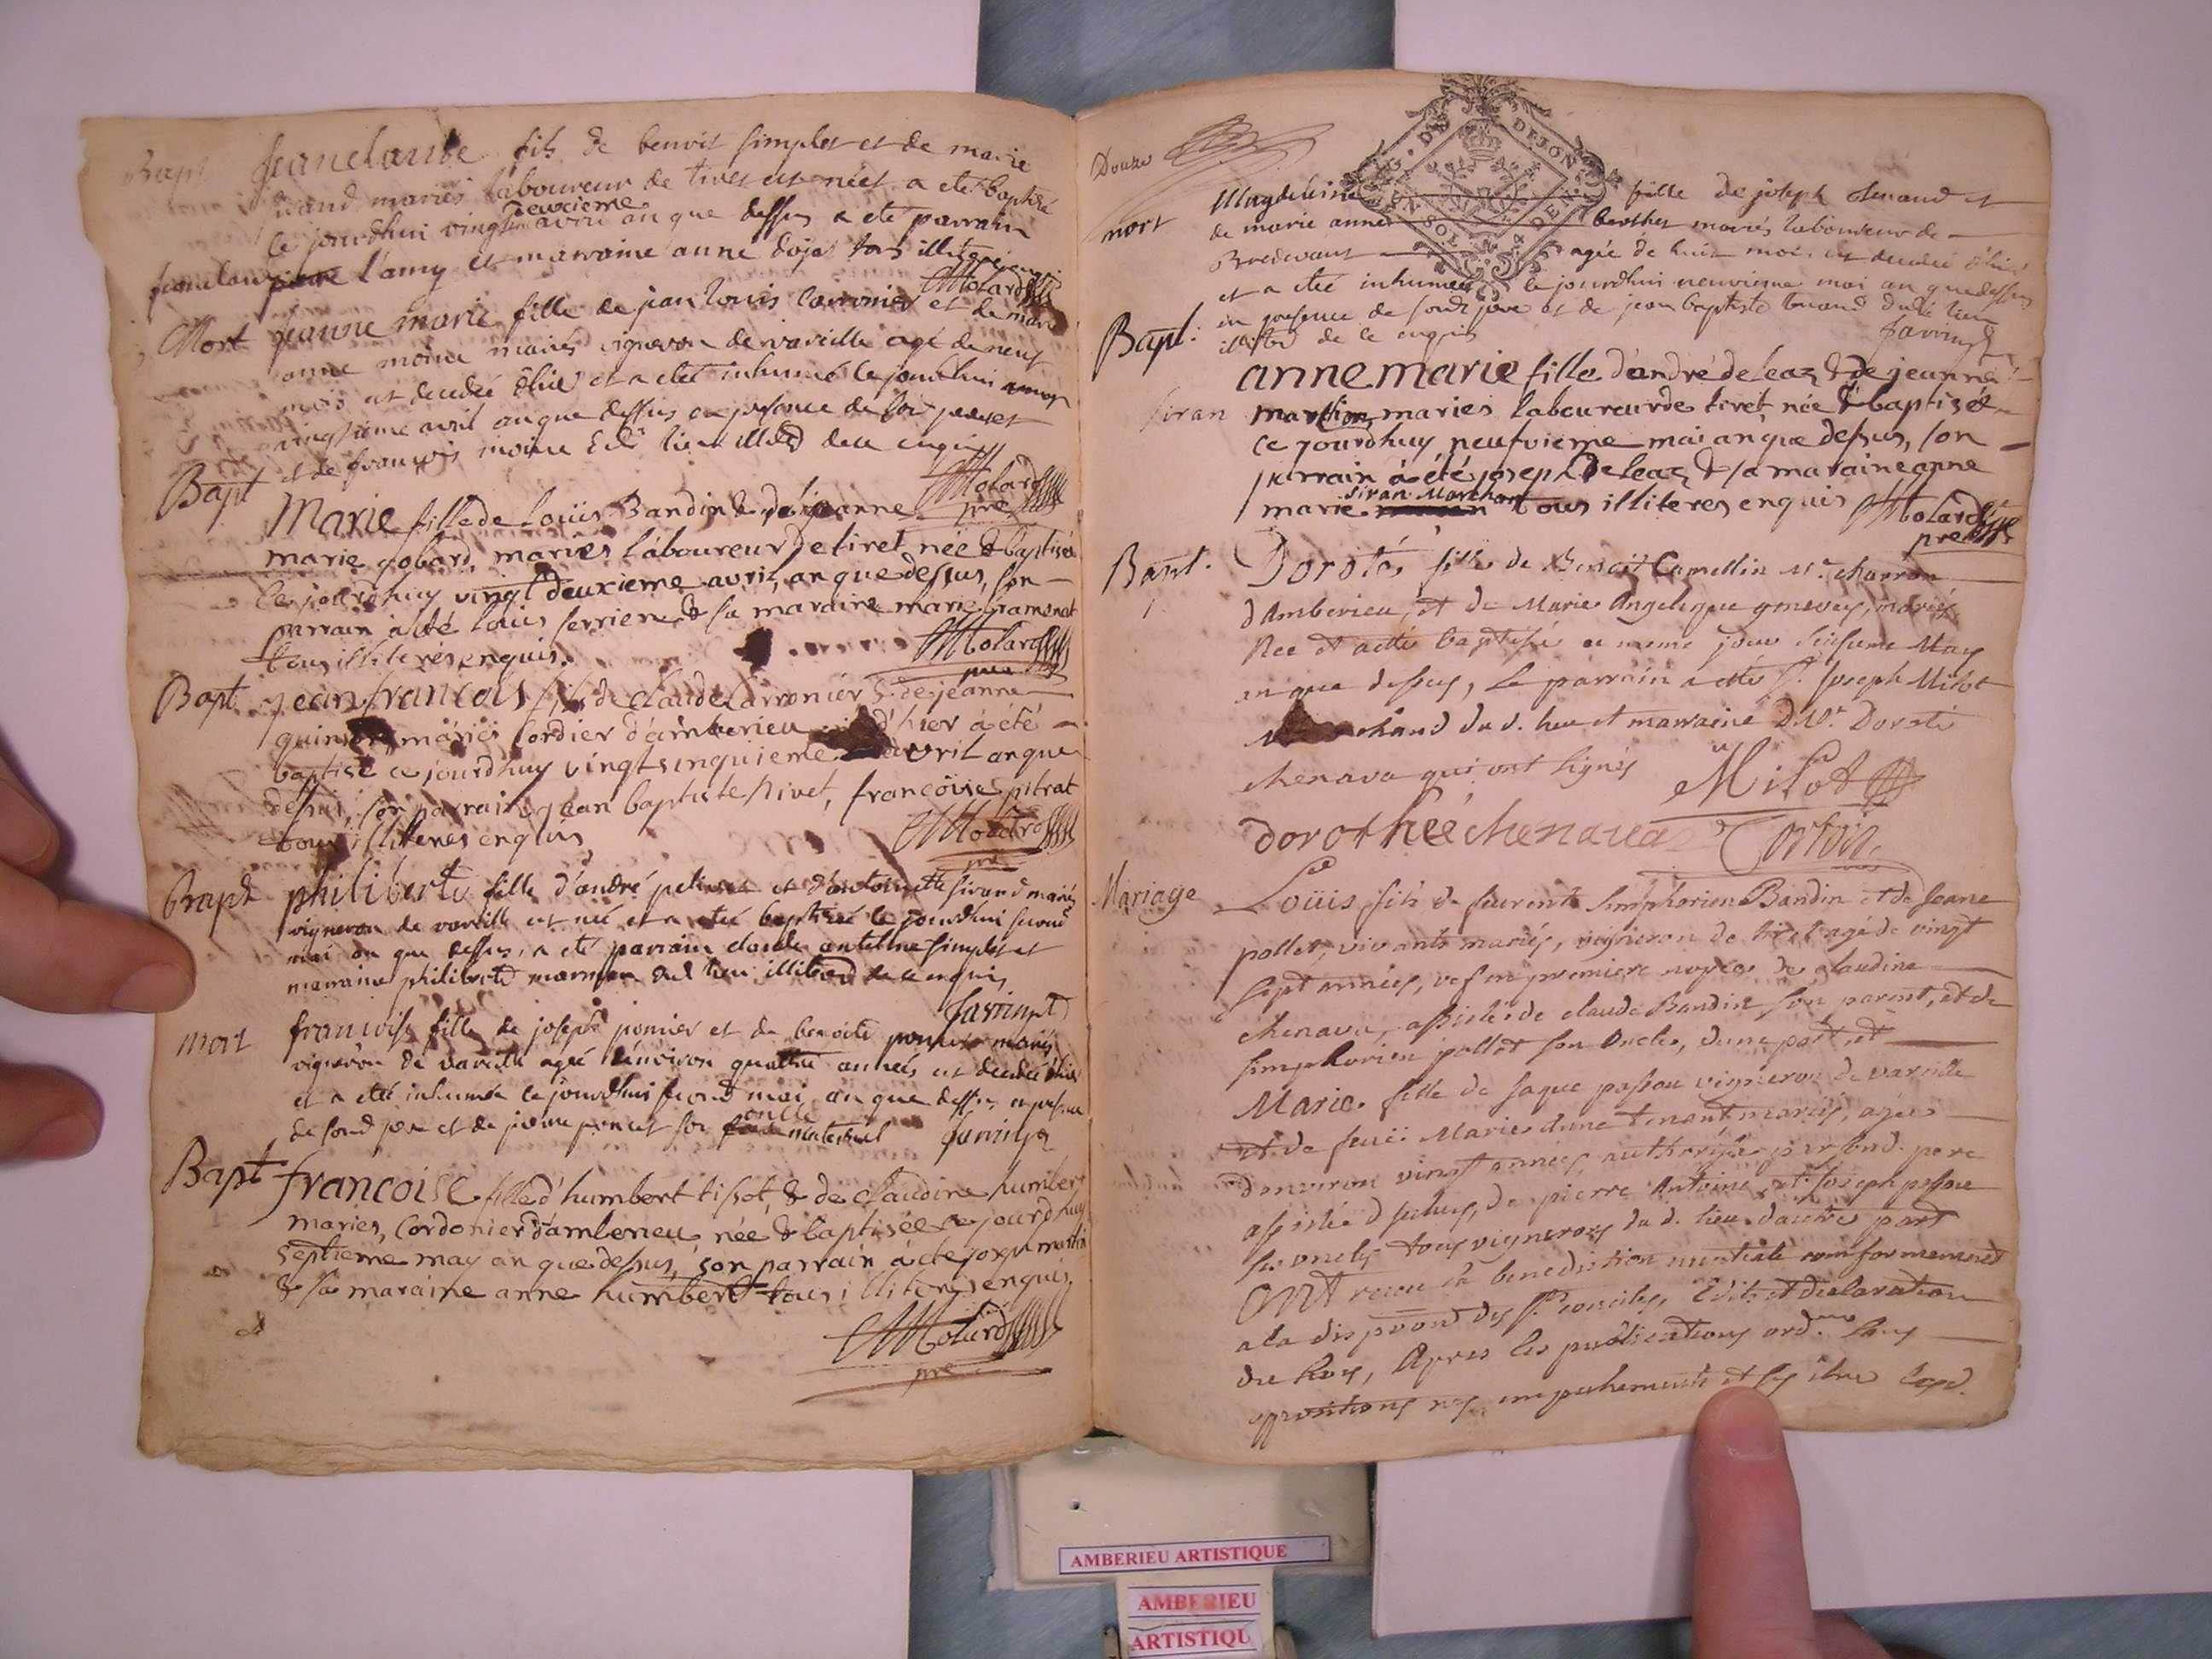 Bapt Jeanclaude fils de benoit simplet et de marie
mariés laboureur de tiret est née et a eté baptisé
ce jourdhui vingt deuxieme avril an que dessus a eté parrain
l'amy et marraine anne tous illiteré enquis
Molard
Mort jeanne marie fille de jean louis carronier et de marie
anne moine mariés vigneron de vareille agé de neuf
mois est decedée hier et a eté inhumé le jourdhui
avril an que dessus en presence de son pere et
et de francois moine dud lieu illiteré de ce enquis
Molard
pre
Bapt Marie fille de Loüis Bandin & de jeanne
marie gobard, mariés laboureur de tiret née & baptisée
ce jourdhuy vingt deuxieme avril, an que dessus, son
parrain a été Louis serriere & sa maraine marie framenat
tous illiterés enquis.
Molard
pre
Bapt jean francois fils de claude Carronier & de jeanne
mariés Cordier d'amberieu d'hier a été
baptisé ce jourdhuy vingtcinquieme avril an que
dessus, son parrain jean baptiste sivet, francoise pitrat
tous illiterés enquis
Molard
pre
Bapt philiberte fille d'andré et d'antoinette sirand mariés
vigneron de vareille est née et a eté baptisée le jourdhui second
mai an que dessus, a eté parrain claude anthelme simplet et
marraine philiberte dud lieu illiteré de ce enquis
Sarrin pt
mort francoise fille de joseph ponier et de benoite mariés
vigneron de vareille agée d'environ quattre années est decedée hier
et a eté inhumée le jourdhui second mai an que dessus en presence
de sond pere et de pierre son oncle maternel Sarrin pt
Bapt francoise fille d'humbert tissot, & de claudine humbert
mariés, Cordonier d'amberieu née & baptisée ce jourdhuy
septieme may an que dessus, son parrain a été joseph martin
& sa maraine anne humbert tous illiterés enquis
Molard
pre
Douze
DIJON
SOL DEN
mort Magdeleine fille de joseph et
de marie anne berthet mariés laboureur de
Bredevant agée de huit mois est decedée hier
et a eté inhumée le jourdhui neuvieme mai an que dessus
en presence de sond pere et de jean baptiste dudt lieu
illiteré de ce enquis Sarrin pt
Bapt. anne marie fille d'andré deleaz & de jeanne
siran marchon mariés laboureur de tiret née & baptisée
ce jourdhuy neufvieme mai an que dessus, son
parrain a été joseph deleaz & sa maraine anne
marie siran marchon tous illiteres enquis Molard
pre
Bapt. Doroté, fille de Benoit Camellin Mr. charron
d'Amberieu, et de Marie Angelique genevey, mariés,
Née et a été baptisée ce meme jour May
an que dessus, le parrain a été Sr. Joseph Milot
Marchand du d. lieu et marraine Dlle. Doroté
chenava qui ont signés
Milot
dorothée chenavaz
Mariage Loüis fils de feu Simphorien Bandin et de Jeane
pollet, vivants mariés, vigneron de tiret agé de vingt
sept années, vef en premiere nopces de claudine
chenava, assisté de claude Bandin son parent, et de
simphorien pollet son oncle, d'une part, et
Marie fille de Jaque passou vigneron de vareille
et de feuë Marie tenant, mariés, agée
d'environ vingt années, authorisée par sond. pere
assistée d'iceluy, de pierre Antoine, et Joseph passou
ses oncles, tous vignerons du d. lieu d'autre part
Ont receu la benediction nuptiale conformement
a la disposon des Sts. conciles, Edits et declaration
du Roy, Apres les publications ord. sans
oppositions ny empechements
AMBERIEU ARTISTIQUE
AMBERIEU
ARTISTIQU